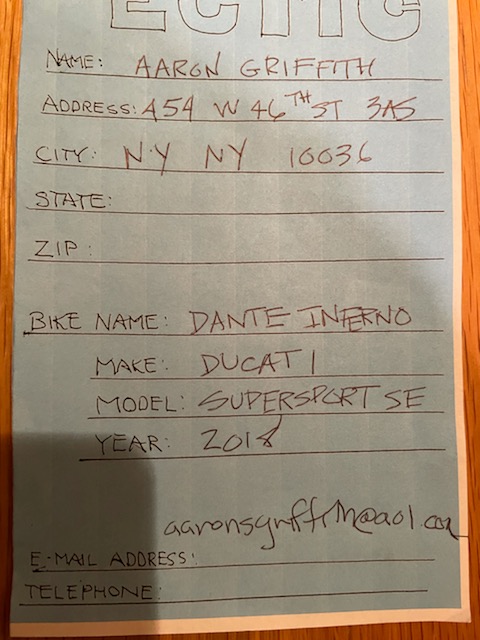 ECMC
NAME: AARON GRIFFITH
ADDRESS: 454 W 46TH ST 3AS
CITY: NY NY 10036
STATE:
ZIP:
BIKE NAME: DANTE INFERNO
MAKE: DUCATI
MODEL: SUPERSPORT SE
YEAR: 2018
aaronsgriffith@aol.com
E-MAIL ADDRESS:
TELEPHONE: